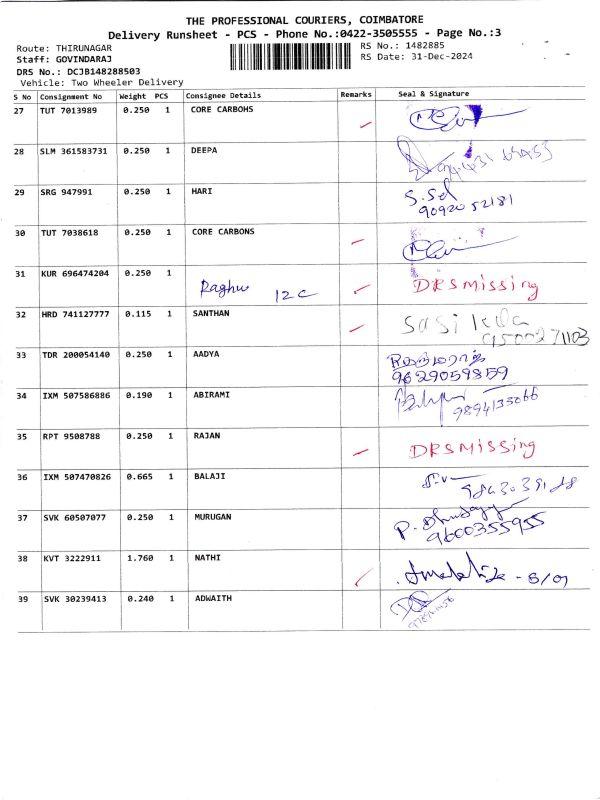 THE PROFESSIONAL COURIERS, COIMBATORE
Delivery Runsheet - PCS - Phone No.:0422-3505555 - Page No.:3
Route: THIRUNAGAR RS No.: 1482885
Staff: GOVINDARAJ RS Date: 31-Dec-2024
DRS No.: DCJB148288503
Vehicle: Two Wheeler Delivery
S No Consignment No Weight PCS Consignee Details Remarks Seal & Signature
27 TUT 7013989 0.250 1 CORE CARBOHS
28 SLM 361583731 0.250 1 DEEPA
29 SRG 947991 0.250 1 HARI S.Sel
9092052181
30 TUT 7038618 0.250 1 CORE CARBONS
31 KUR 696474204 0.250 1 Raghu 12C DRSMissing
32 HRD 741127777 0.115 1 SANTHAN Sasikala
9500271103
33 TDR 200054140 0.250 1 AADYA
9629059859
34 IXM 507586886 0.190 1 ABIRAMI
9894135066
35 RPT 9508788 0.250 1 RAJAN DRSMissing
36 IXM 507470826 0.665 1 BALAJI
37 SVK 60507077 0.250 1 MURUGAN P.
9600355955
38 KVT 3222911 1.760 1 NATHI
39 SVK 30239413 0.240 1 ADWAITH